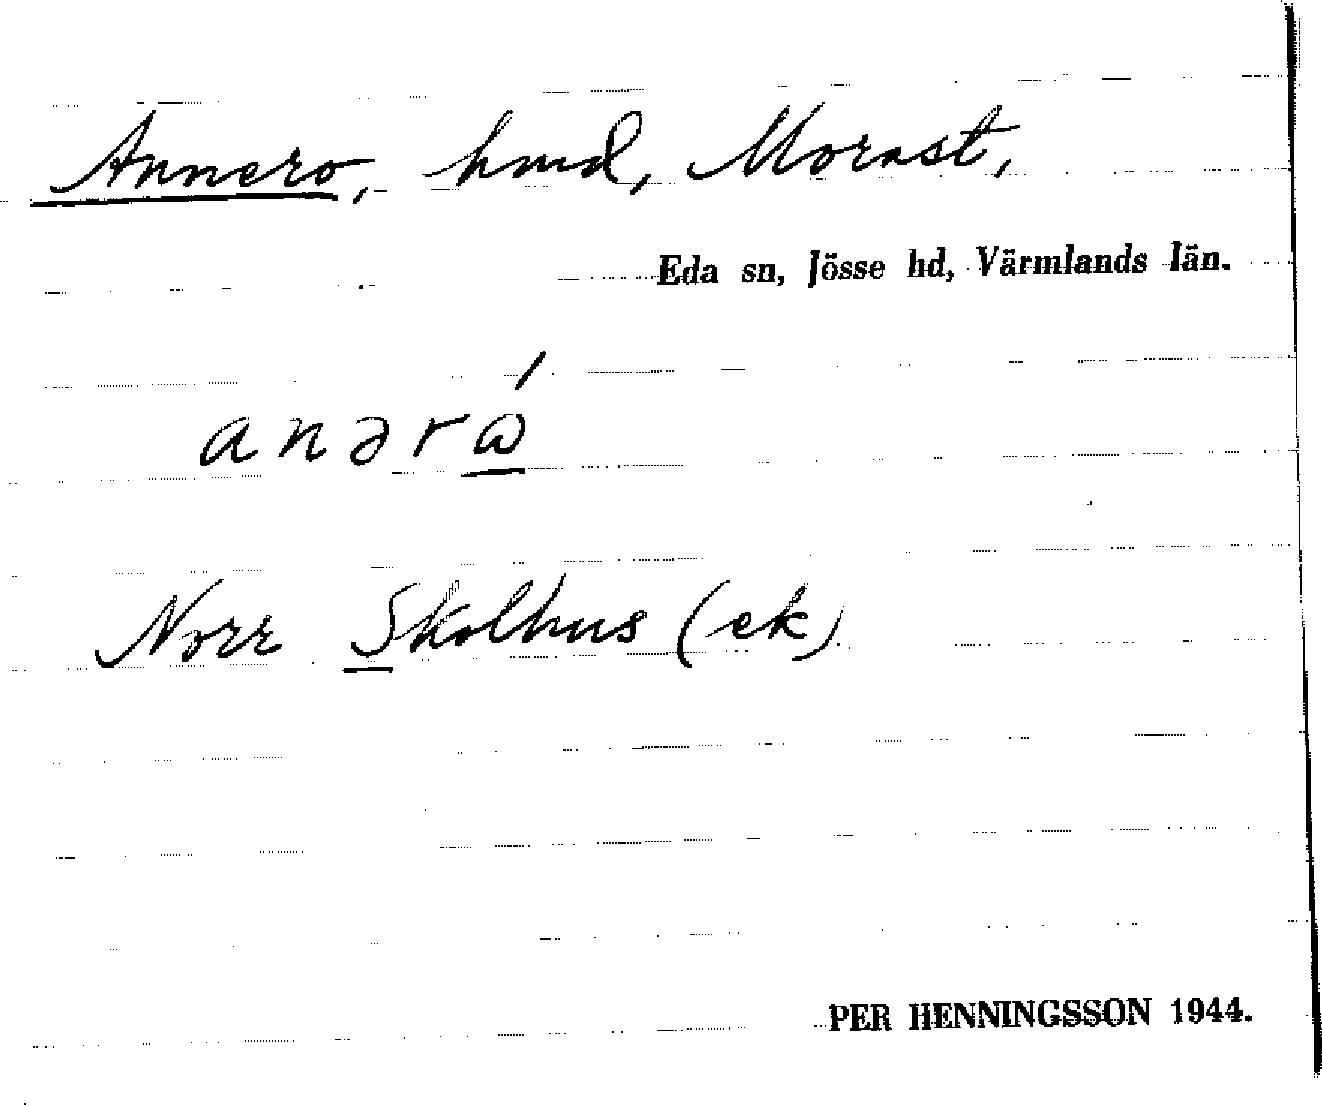 Annero, hmd, Morast,
Eda sn, Jösse hd, Värmlands län.
anərώ
Norr Skolhus (ek)
PER HENNINGSSON 1944.